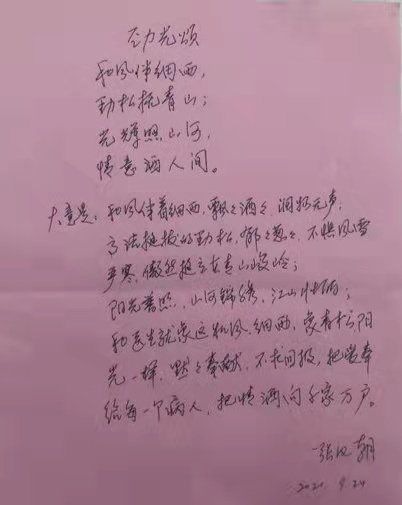 劲光颂
和风伴细雨，
劲松抚青山；
光辉照山河，
情意洒人间。
大意是：和风伴着细雨，飘々洒々，润物无声；
高洁挺拔的劲松，郁々葱々，不惧风雪
严寒，傲然挺立在青山峻岭；
阳光普照，山河锦绣，江山壮丽；
和医生就象这和风、细雨，象青松阳
光一样，默々奉献，不求回报，把爱奉
给每一个病人，把情洒向千家万户。
张 朝
2021.9.24